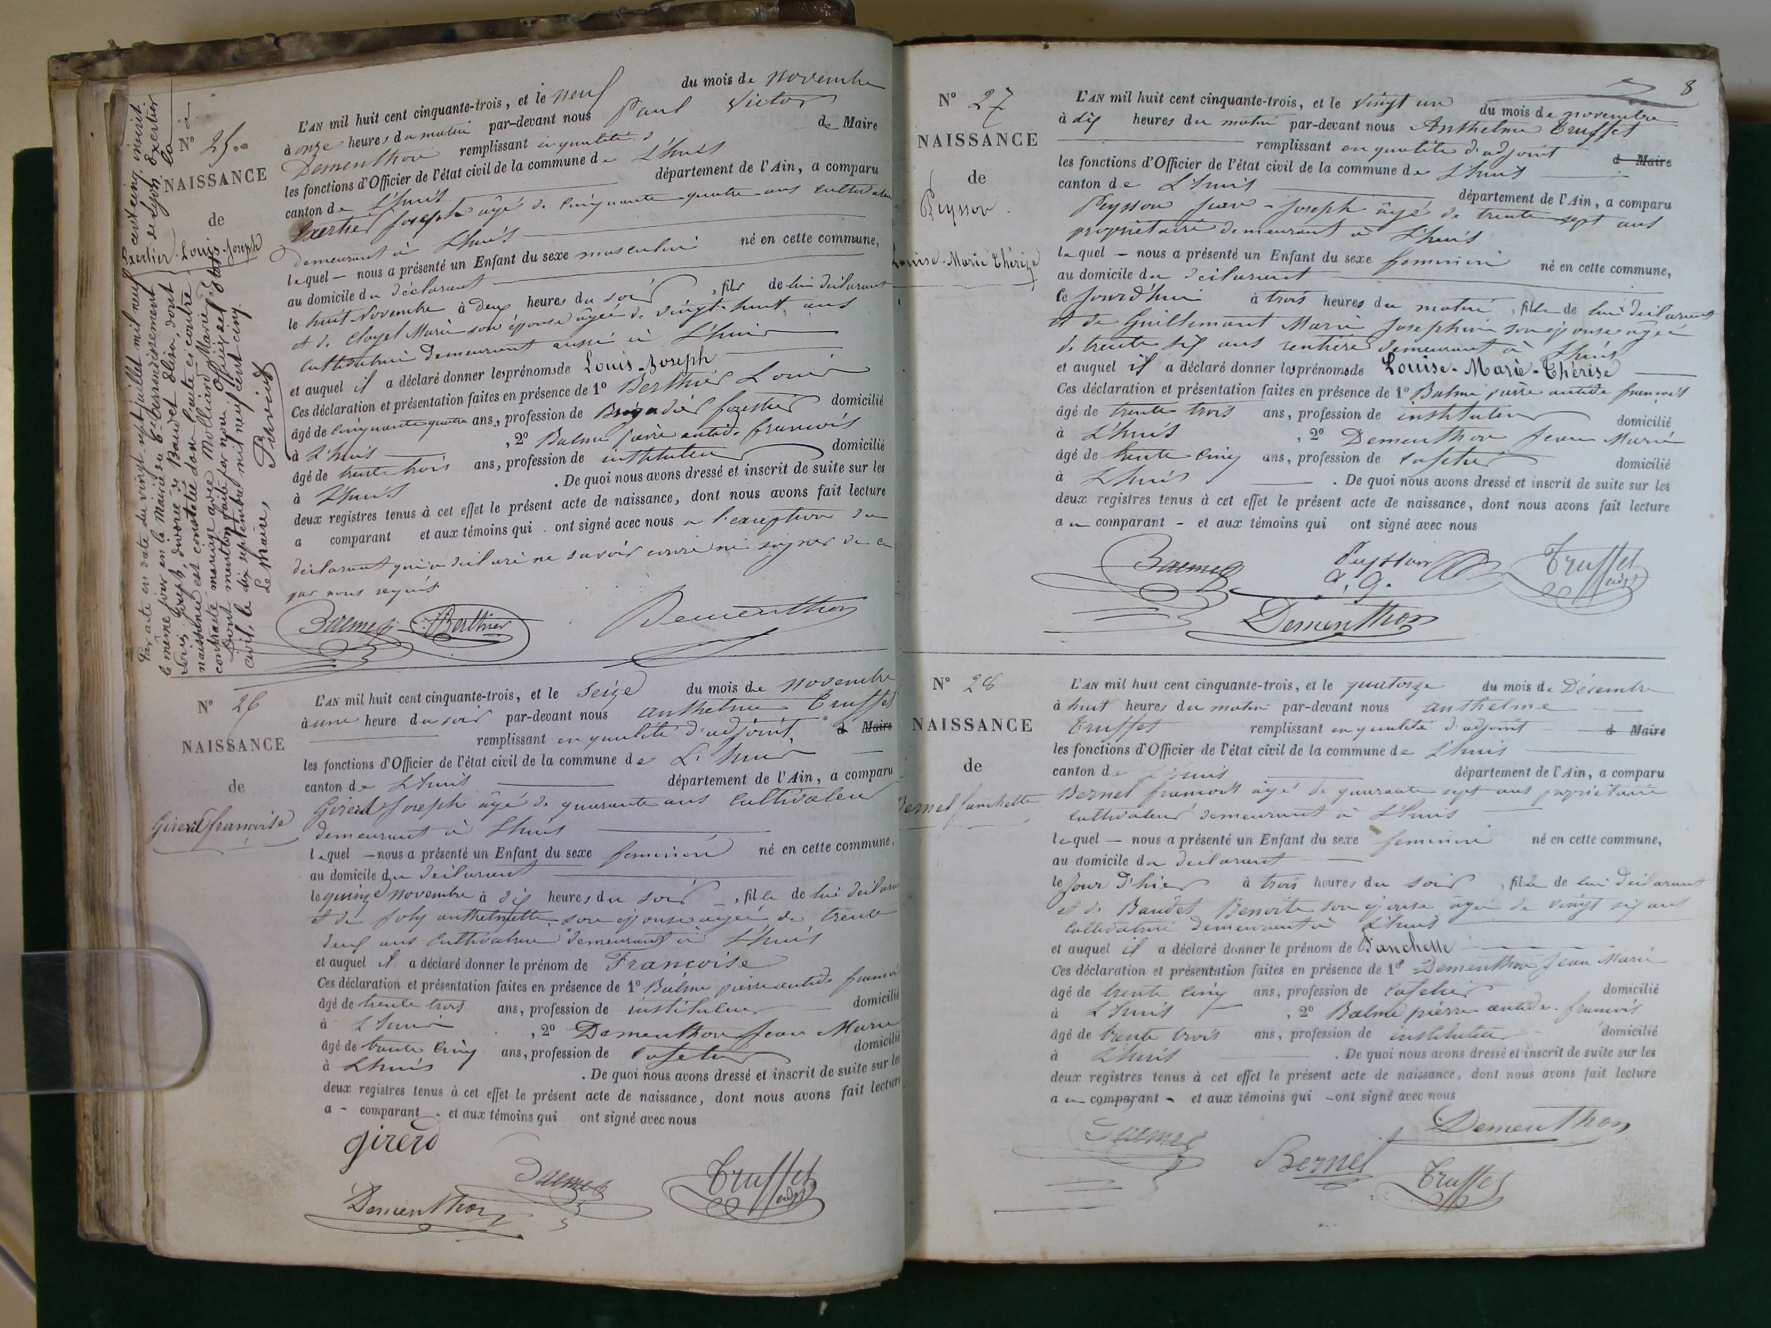 N° 25
NAISSANCE
de
Exertier Louis-Joseph
Par acte en date du vingt sept juillet mil neuf cent cinq, inscrit
le même jour en la Mairie du arrondissement de Lyon, Exertier
Louis Joseph, divorcé de Baudet Elisa, dont la
naissance est constatée dans l'acte ci-contre, a
contracté mariage avec Molliard Marie
Dont mention faite par nous, officier de l'état
civil, le dix septembre mil neuf cent cinq.
Le Maire,
L'AN mil huit cent cinquante-trois, et le neuf du mois de novembre
à onze heures du matin par-devant nous Paul Victor
Dementhon remplissant en qualité de Maire
les fonctions d'Officier de l'état civil de la commune de L'huis
canton de L'huis département de l'Ain, a comparu
Exertier Joseph âgé de cinquante quatre ans cultivateur
demeurant à L'huis
lequel nous a présenté un Enfant du sexe masculin né en cette commune,
au domicile du déclarant
le huit Novembre à deux heures du soir, fils de lui déclarant
et de Clayet Marie son épouse âgée de vingt-huit ans
cultivatrice demeurant aussi à L'huis
et auquel il a déclaré donner les prénoms de Louis-Joseph
Ces déclaration et présentation faites en présence de 1° Berthier Louis
âgé de cinquante quatre ans, profession de Brigadier forestier domicilié
à L'huis, 2° Balme pierre antide françois
âgé de trente trois ans, profession de instituteur domicilié
à L'huis. De quoi nous avons dressé et inscrit de suite sur les
deux registres tenus à cet effet le présent acte de naissance, dont nous avons fait lecture
a comparant et aux témoins qui ont signé avec nous à l'exception du
déclarant qui a déclaré ne savoir écrire ni signer de ce
par nous requis
Balme Berthier Dementhon
N° 26
NAISSANCE
de
Girerd françoise
L'AN mil huit cent cinquante-trois, et le Seize du mois de novembre
à une heure du soir par-devant nous anthelme Truffet
remplissant en qualité d'adjoint d Maire
les fonctions d'Officier de l'état civil de la commune de L'huis
canton de L'huis département de l'Ain, a comparu
Girerd Joseph âgé de quarante ans cultivateur
demeurant à L'huis
lequel nous a présenté un Enfant du sexe féminin né en cette commune,
au domicile du déclarant
le quinze novembre à dix heures du soir, fille de lui déclarant
et de Joly anthelmette son épouse agée de trente
deux ans cultivatrice demeurant à L'huis
et auquel il a déclaré donner le prénom de Françoise
Ces déclaration et présentation faites en présence de 1° Balme pierre antide françois
âgé de trente trois ans, profession de instituteur domicilié
à L'huis, 2° Dementhon Jean Marie
âgé de trente cinq ans, profession de cafetier domicilié
à L'huis. De quoi nous avons dressé et inscrit de suite sur les
deux registres tenus à cet effet le présent acte de naissance, dont nous avons fait lecture
a comparant et aux témoins qui ont signé avec nous
girerd
Balme Truffet adjt
Dementhon
8
N° 27
NAISSANCE
de
Peysson
Louise-Marie Thérèze
L'AN mil huit cent cinquante-trois, et le vingt un du mois de novembre
à dix heures du matin par-devant nous Anthelme Truffet
remplissant en qualité d'adjoint d Maire
les fonctions d'Officier de l'état civil de la commune de L'huis
canton de L'huis département de l'Ain, a comparu
Peysson Joseph âgé de trente sept ans
propriétaire demeurant à L'huis
lequel nous a présenté un Enfant du sexe féminin né en cette commune,
au domicile du déclarant
le Jourd'hui à trois heures du matin, fille de lui déclarant
et de Guillemont Marie Josephine son épouse agée
de trente six ans rentière demeurant à L'huis
et auquel il a déclaré donner les prénoms de Louise-Marie-Thérèse
Ces déclaration et présentation faites en présence de 1° Balme pierre antide françois
âgé de trente trois ans, profession de instituteur domicilié
à L'huis, 2° Dementhon Jean Marie
âgé de trente cinq ans, profession de cafetier domicilié
à L'huis. De quoi nous avons dressé et inscrit de suite sur les
deux registres tenus à cet effet le présent acte de naissance, dont nous avons fait lecture
au comparant et aux témoins qui ont signé avec nous
Balme Peysson Truffet adjt
Dementhon
N° 28
NAISSANCE
de
Bernel fanchette
L'AN mil huit cent cinquante-trois, et le quatorze du mois de Décembre
à huit heures du matin par-devant nous anthelme
Truffet remplissant en qualité d'adjoint d Maire
les fonctions d'Officier de l'état civil de la commune de L'huis
canton de L'huis département de l'Ain, a comparu
Bernel françois âgé de quarante sept ans propriétaire
cultivateur demeurant à L'huis
lequel nous a présenté un Enfant du sexe féminin né en cette commune,
au domicile du déclarant
le Jour d'hier à trois heures du soir, fille de lui déclarant
et de Baudet Benoîte son épouse âgée de vingt six ans
cultivatrice demeurant à L'huis
et auquel il a déclaré donner le prénom de Fanchette
Ces déclaration et présentation faites en présence de 1° Dementhon Jean Marie
âgé de trente cinq ans, profession de cafetier domicilié
à L'huis, 2° Balme pierre antide françois
âgé de trente trois ans, profession de instituteur domicilié
à L'huis. De quoi nous avons dressé et inscrit de suite sur les
deux registres tenus à cet effet le présent acte de naissance, dont nous avons fait lecture
au comparant et aux témoins qui ont signé avec nous
Dementhon
Balme Bernel Truffet